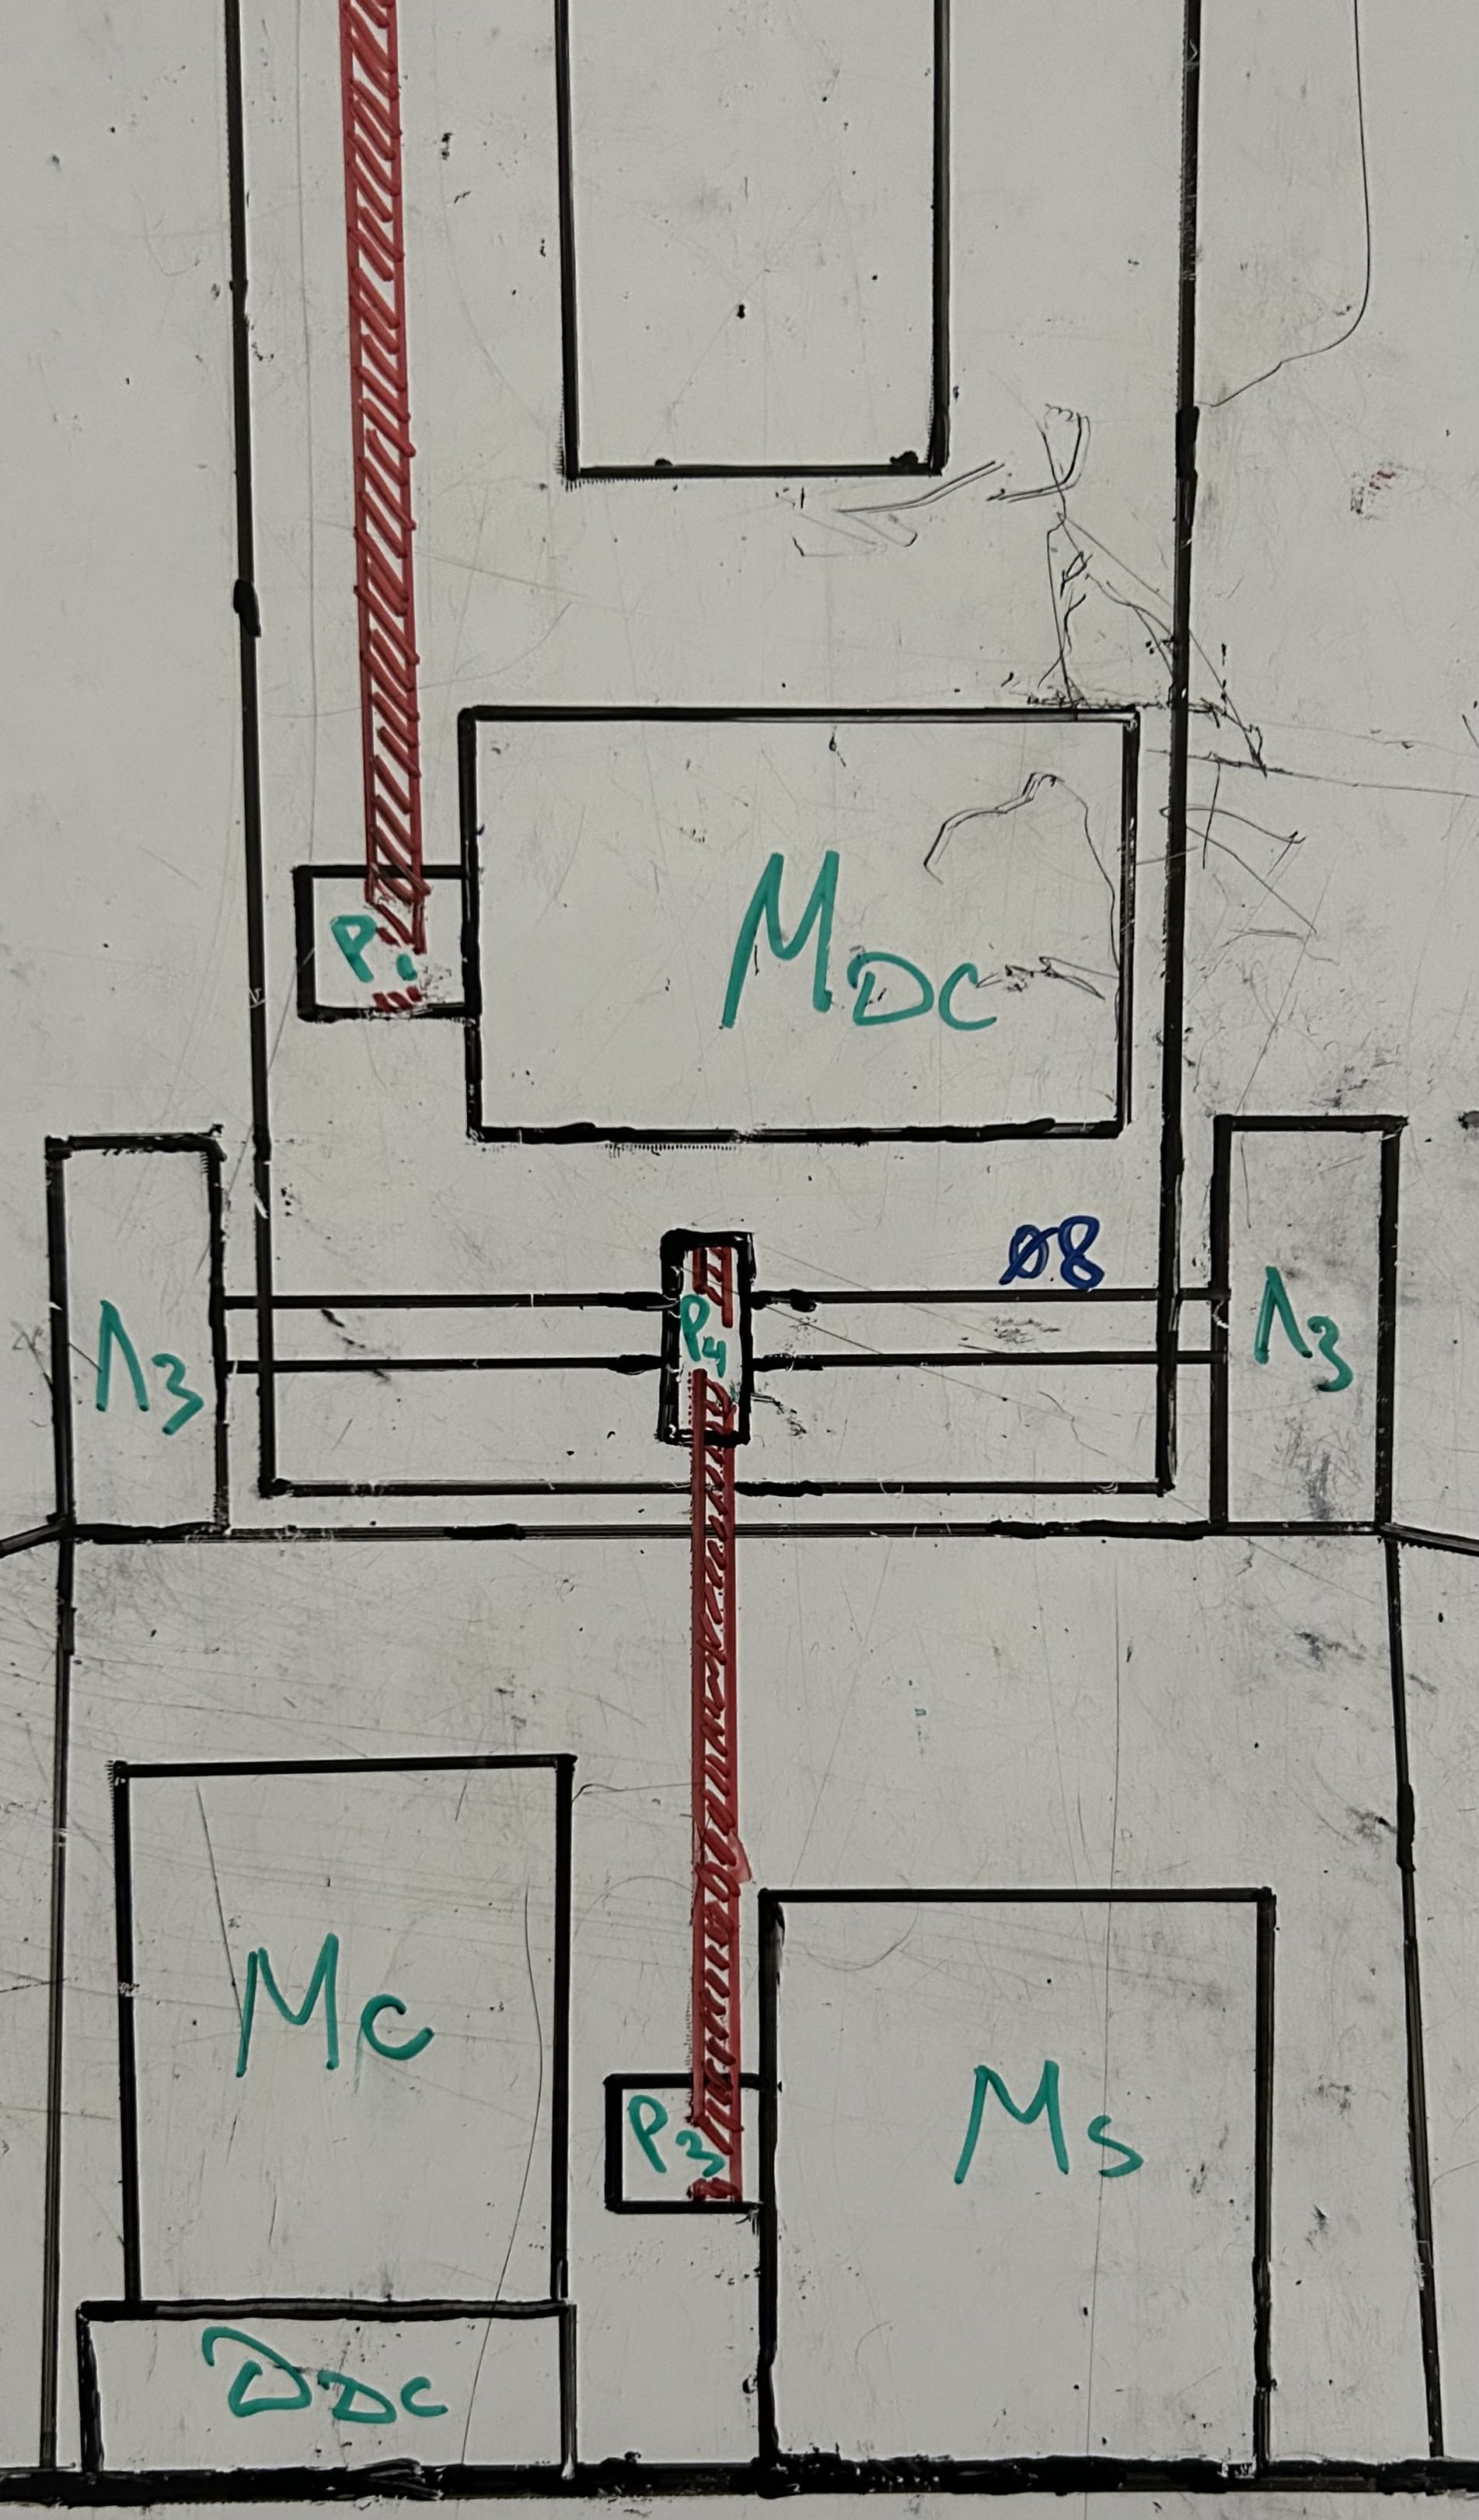 P1
MDC
Ø8
Λ3
P4
Λ3
MC
P3
MS
DDC